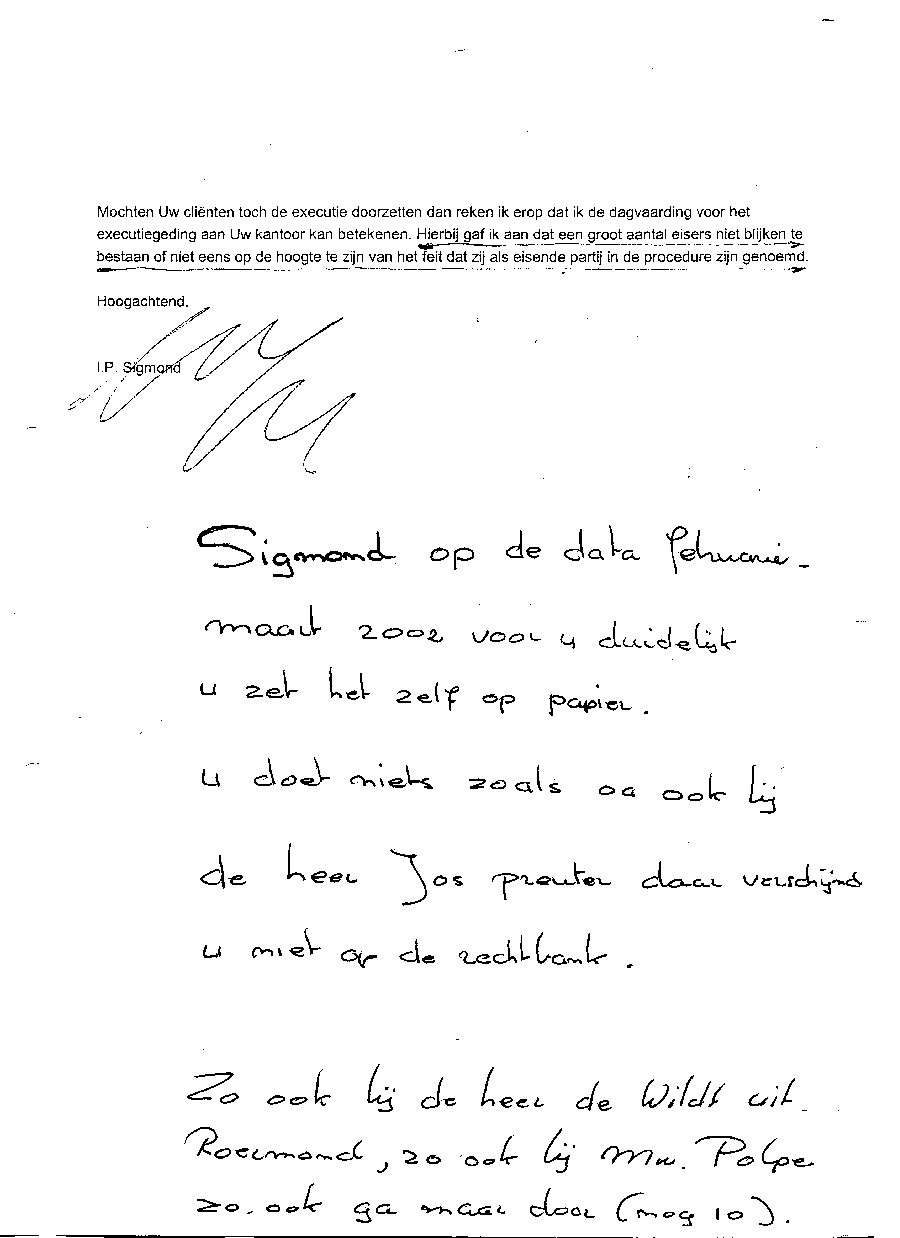 Mochten Uw cliënten toch de executie doorzetten dan reken ik erop dat ik de dagvaarding voor het
executiegeding aan Uw kantoor kan betekenen. Hierbij gaf ik aan dat een groot aantal eisers niet blijken te
bestaan of niet eens op de hoogte te zijn van het feit dat zij als eisende partij in de procedure zijn genoemd.
Hoogachtend,
I.P. Sigmond
Sigmond op de data februarie -
maart 2002 voor u duidelijk
u zet het zelf op papier.
u doet niets zoals oa ook bij
de heer Jos preuter daar verschijnd
u niet op de rechtbank.
Zo ook bij de heer de Wildt uit
Roermond, zo ook bij Mw. Polpe
zo.ook ga maar door (nog 10).